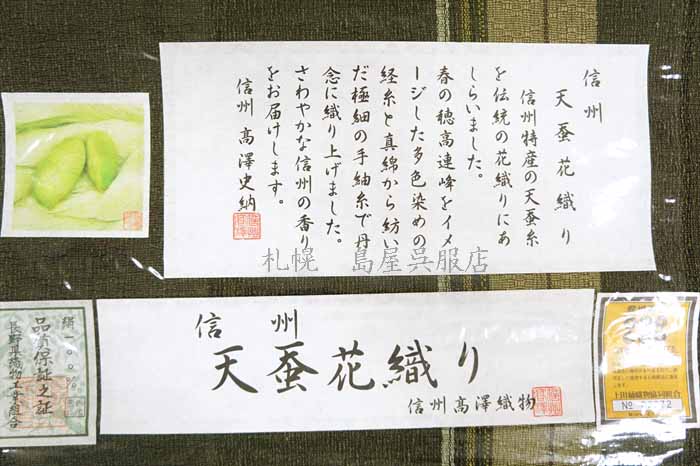 信州
天蚕花織り
信州特産の天蚕糸
を伝統の花織りにあ
しらいました。
春の穂高連峰をイメ
ージした多色染めの
経糸と真綿から紡い
だ極細の手紬糸で丹
念に織り上げました。
さわやかな信州の香り
をお届けします。
信州 髙澤史納
札幌 島屋呉服店
信州
天蚕花織り
信州髙澤織物
品質保証之証
上田紬織物協同組合